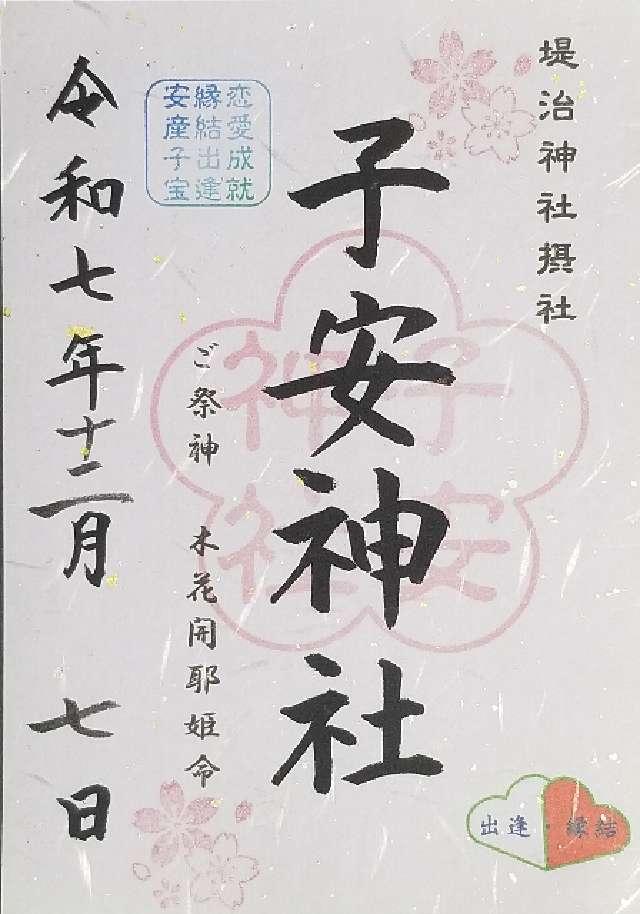 堤治神社摂社
子安神社
子安
神社
恋愛成就
縁結出逢
安産子宝
ご祭神 木花開耶姫命
令和七年十二月 七日
出逢・縁結